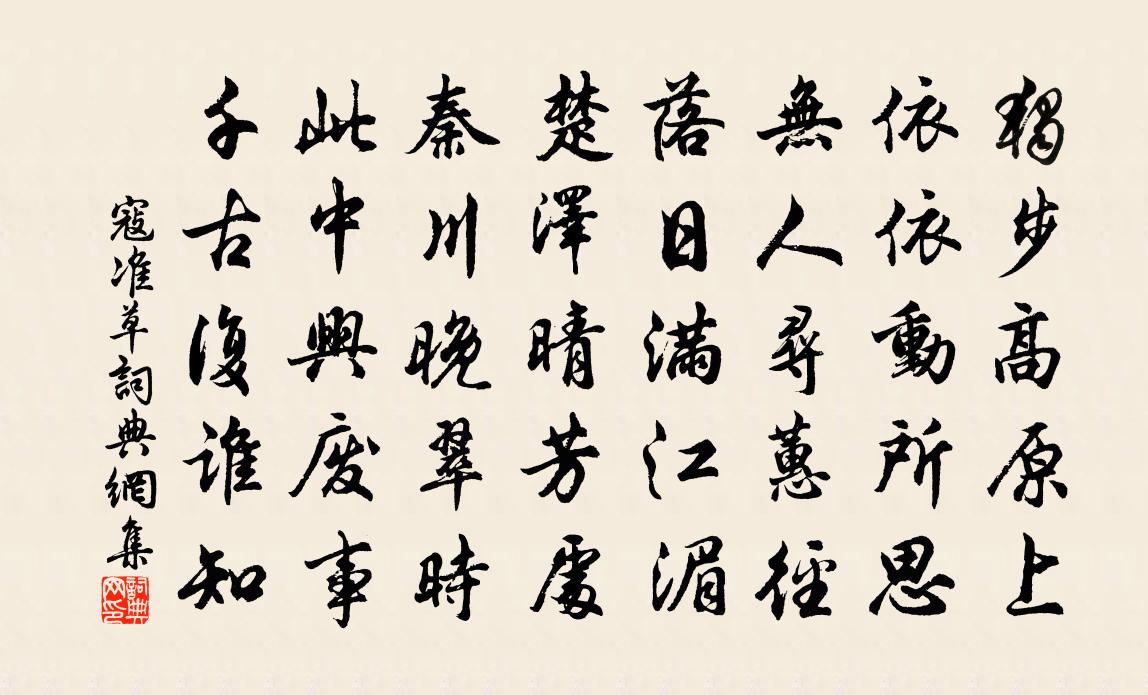 獨步高原上
依依動所思
無人尋蕙徑
落日滿江湄
楚澤晴芳處
秦川晚翠時
此中興廢事
千古復誰知
寇准草詞典網集
詞典網印